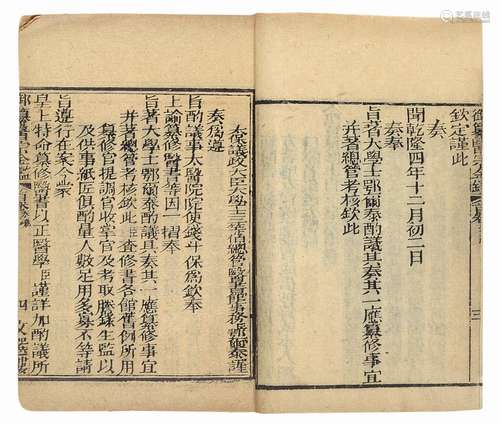 御纂醫宗金鑑
三
欽定謹此
奏
聞乾隆四年十二月初二日
奏奉
旨著大學士鄂爾泰酌議具奏其一應纂修事宜
并著總管考核欽此
太保議政大臣大學士三等伯總管醫館事務鄂爾泰謹
奏爲遵
旨酌議事太醫院院使錢斗保爲欽奉
上諭纂修醫書等因一摺奉
旨著大學士鄂爾泰酌議具奏其一應纂修事宜
并著總管考核欽此查修書各館舊例所用
纂修官提調官收掌官及考取謄錄生監以
及供事紙匠俱酌量人數足用多寡不等請
旨遵行在案今蒙
皇上特命纂修醫書以正醫學臣謹詳加酌議所
御纂醫宗金鑑
四